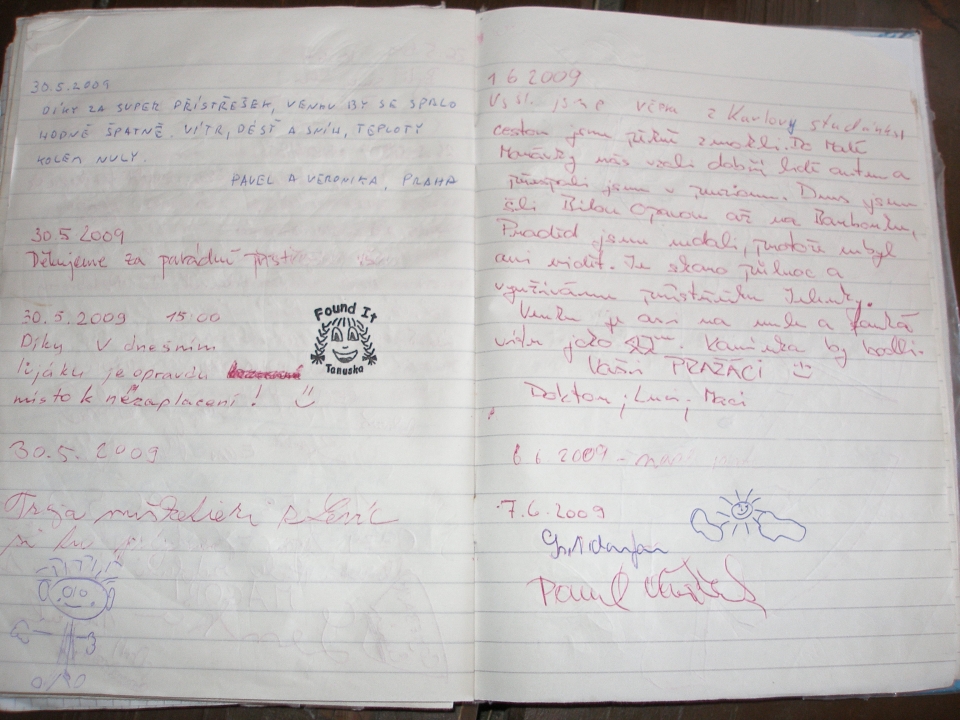 30.5.2009
DÍKY ZA SUPER PŘÍSTŘEŠEK, VENKU BY SE SPALO
HODNĚ ŠPATNĚ. VÍTR, DÉŠŤ A SNÍH, TEPLOTY
KOLEM NULY.
PAVEL A VERONIKA, PRAHA
30.5 2009
Děkujeme za parádní
30.5.2009 15:00
Díky v dnešním
lijáku je opravdu
místo k nezaplacení!
Found It
Tanuska
30.5. 2009
Tři mušketieri z Levíc
1 6 2009
jsme včera z Karlovy studánky
cestou jsme zmokli. Do Malé
Morávky nás vzali dobří lidé autem a
přespali jsme v penzionu. Dnes jsme
šli Bílou Opavou až na Barborku,
Praděd jsme nedali, protože nebyl
ani vidět. Je skoro půlnoc a
využíváme přístřešku
Venku je asi na nule a fouká
vítr jako Kamínka by bodla.
Vaši PRAŽÁCI
Doktor, Luci, Maci
6 6 2009 -
7.6.2009
Pavel